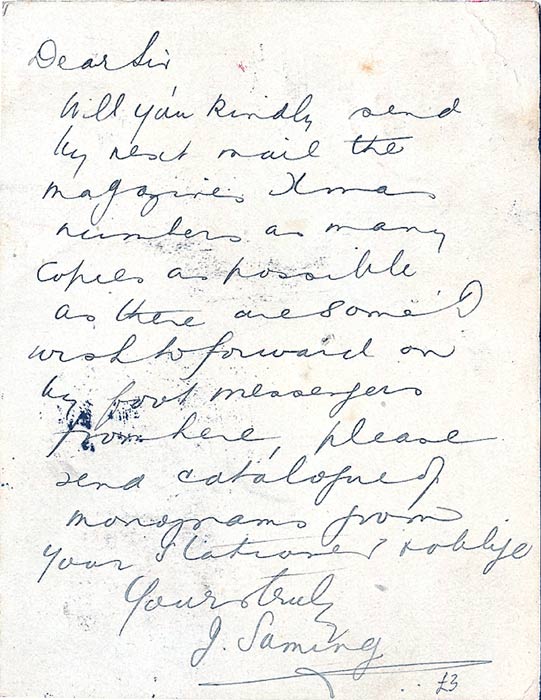 Dear Sir
Will you kindly send
by next mail the
magazines Xmas
numbers as many
copies as possible
as there are some I
wish to forward on
by foot messengers
from here, please
send catalogue of
monograms from
your Stationery & oblige
Yours truly
J. Saming
£3